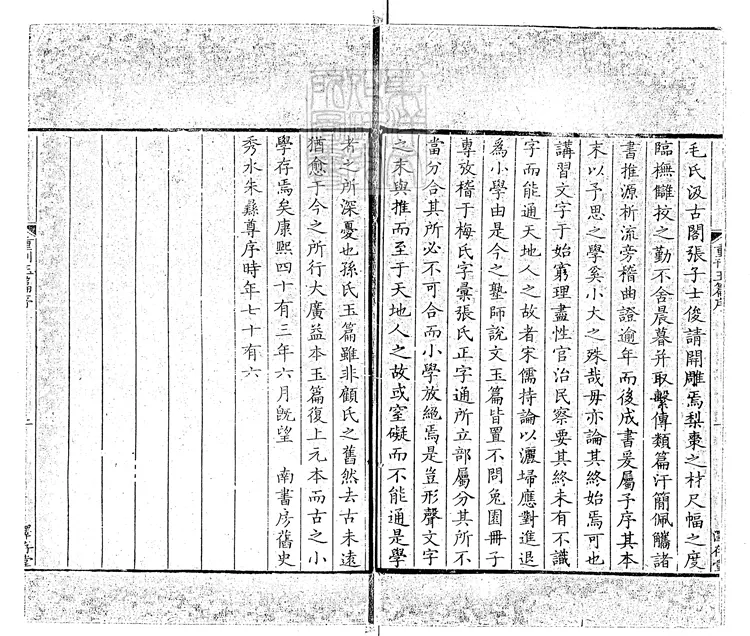 毛氏汲古閣張子士俊請開雕焉梨棗之材尺幅之度
臨橅讎挍之勤不舍晨暮并取繫傳類篇汗簡佩觿諸
書推源析流旁稽曲證逾年而後成書爰屬予序其本
末以予思之學奚小大之殊哉毋亦論其終始焉可也
講習文字于始窮理盡性官治民察要其終未有不識
字而能通天地人之故者宋儒持論以灑埽應對進退
爲小學由是今之塾師說文玉篇皆置不問兎園冊子
專攷稽于梅氏字彙張氏正字通所立部屬分其所不
當分合其所必不可合而小學放絕焉是豈形聲文字
之末與推而至于天地人之故或窒礙而不能通是學
者之所深憂也孫氏玉篇雖非顧氏之舊然去古未遠
猶愈于今之所行大廣益本玉篇復上元本而古之小
學存焉矣康熙四十有三年六月旣望 南書房舊史
秀水朱彝尊序時年七十有六
重刊玉篇序
二
澤存堂